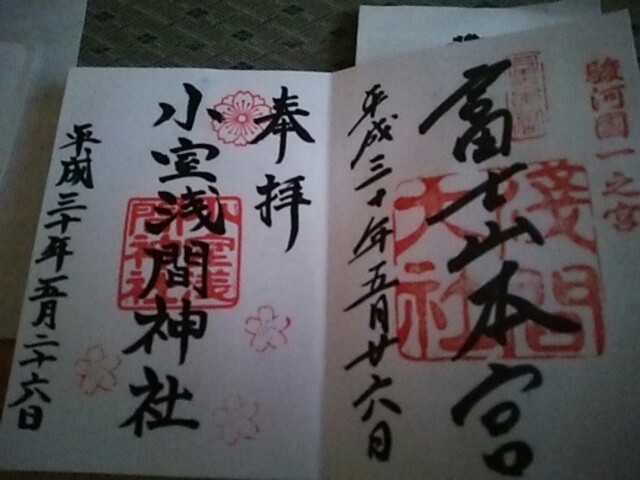 駿河國一之宮
富士山本宮
淺間
大社
平成三十年五月廿六日
奉拝
小室浅間神社
平成三十年五月二十六日